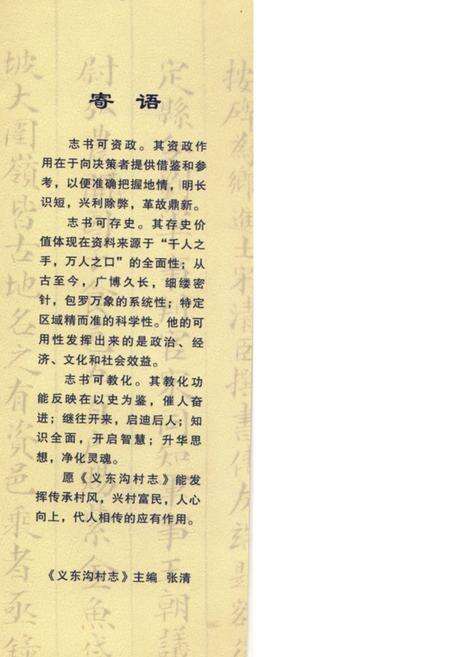 寄语
志书可资政。其资政作
用在于向决策者提供借鉴和参
考，以便准确把握地情，明长
识短，兴利除弊，革故鼎新。
志书可存史。其存史价
值体现在资料来源于“千人之
手，万人之口”的全面性；从
古至今，广博久长，细缕密
针，包罗万象的系统性；特定
区域精而准的科学性。他的可
用性发挥出来的是政治、经
济、文化和社会效益。
志书可教化。其教化功
能反映在以史为鉴，催人奋
进；继往开来，启迪后人；知
识全面，开启智慧；升华思
想，净化灵魂。
愿《义东沟村志》能发
挥传承村风，兴村富民，人心
向上，代人相传的应有作用。
《义东沟村志》主编 张清
坡大圍嶺皆古地名之有資邑乘者亟錄